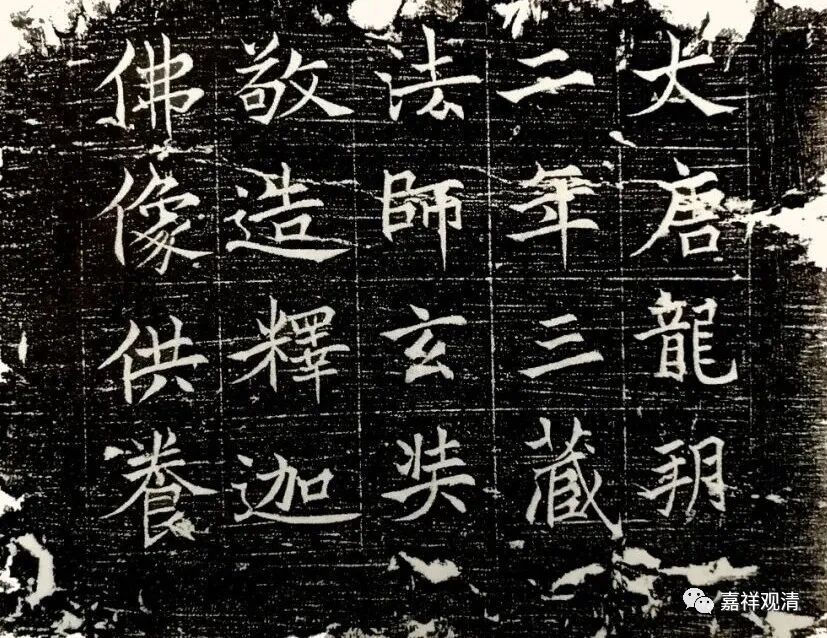 大唐龍朔
二年三藏
法師玄奘
敬造釋迦
佛像供養
嘉祥观清